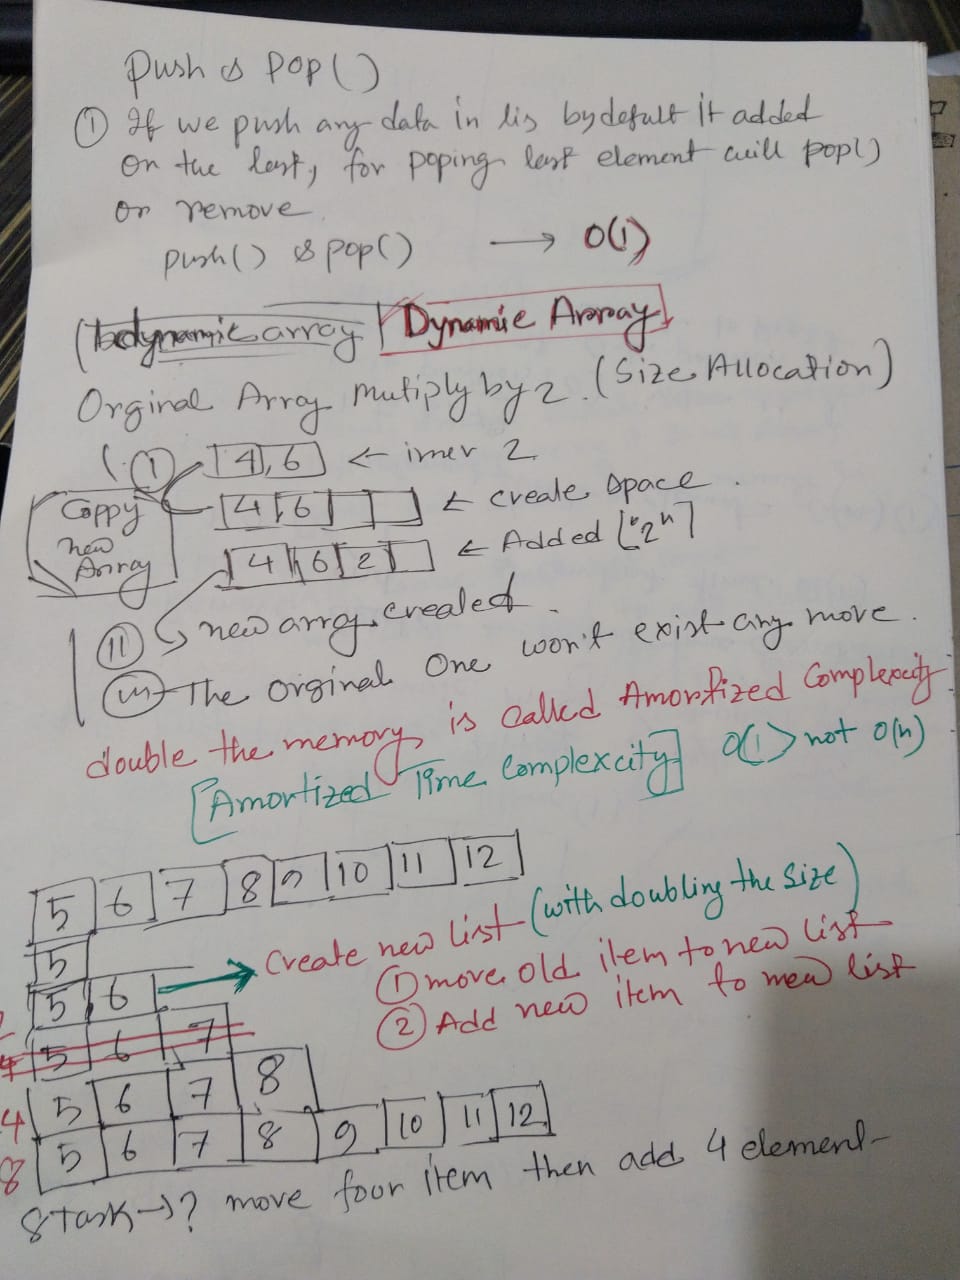 Push & Pop()
① If we push any data in lis bydefult it added
on the last, for poping last element will pop()
or remove
push() & pop() → O(1)
dynamic array Dynamic Array
Orginal Array Mutiply by 2. (Size Allocation)
① 4, 6 ←  2
4 6 ← create space.
Coppy new Array
4 6 2 ← Added ["2ⁿ]
⑪ new array created.
The original one won't exist any more.
double the memory is called Amortized Complexcity
[Amortized Time Complexcity] O(1) not O(n)
5 6 7 8 9 10 11 12
5
5 6 → Create new list (with doubling the size)
① move old item to new list
② Add new item to new list
5 6 7
4 5 6 7 8
8 5 6 7 8 9 10 11 12
8 Task → ? move four item then add 4 element